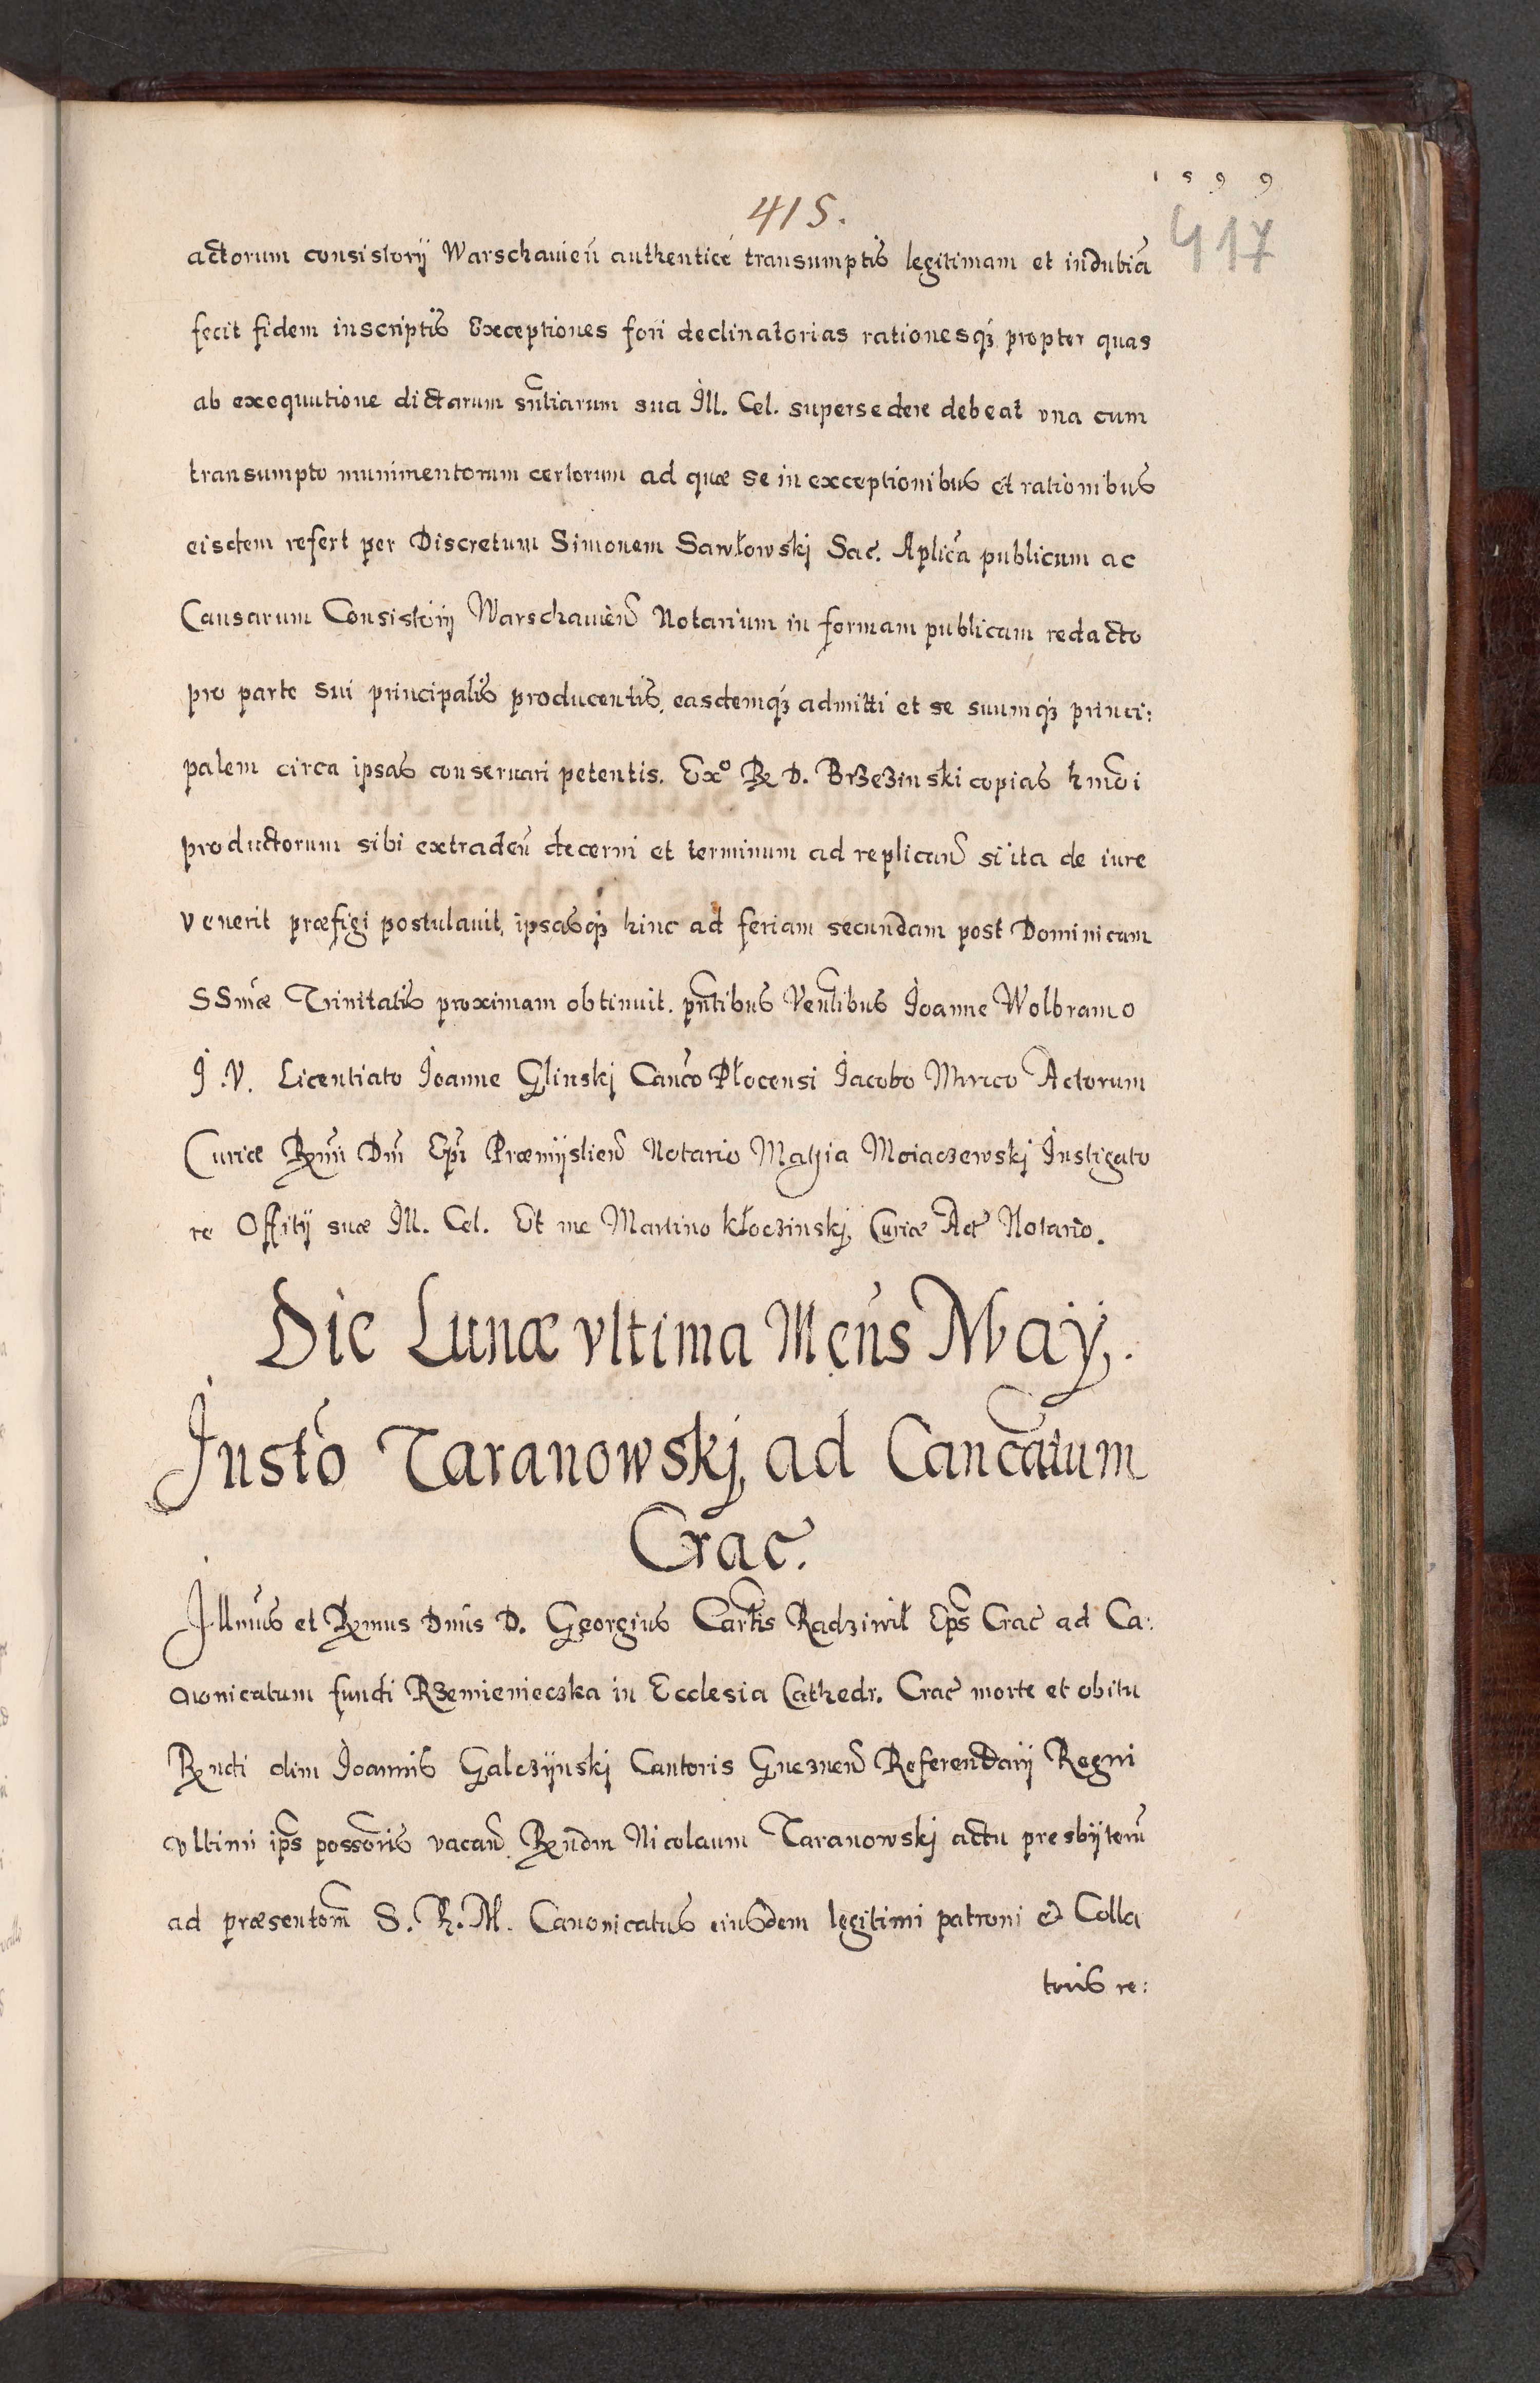 1599
415.
417
actorum consistorij Warschauieñ authenticé transumptis legitimam et indubiã
fecit fidem inscriptis Exceptiones fori declinatorias rationesq́ꝫ propter quas
ab exequutione dictarum sñtiarum sua Ill. Cel. supersedere debeat vna cum
transumpto munimentorum certorum ad quæ se in exceptionibus et rationibus
eisdem refert per Discretum Simonem Sawłowskj Sac̃. Aplicã publicum ac
Causarum Consistorij Warschauieñ Notarium in formam publicam redacto
pro parte sui principalis producentis, easdemq́ꝫ admitti et se suumq́ꝫ princi:
palem circa ipsas conseruari petentis. Exº R D. Brzezinski copias hmõi
productorum sibi extradeñ decerni et terminum ad replicañ si ita de iure
venerit præfigi postulauit, ipsasq́ꝫ hinc ad feriam secundam post Dominicam
SSmæ Trinitatis proximam obtinuit. pñtibus Veñlibus Joanne Wolbramo
J.V. Licentiato Joanne Glinskj Canc̃o Płocensi Jacobo Mirico Actorum
Curiæ Rm̃i Dñi Epĩ Præmijslieñ Notario Mathia Moiaczewskj Instigato
re Offitij suæ Ill. Cel. Et me Martino Kłoczinskj Curiæ Act̃ Notario.
Die Lunæ vltima Meñs May.
Instõ Taranowskj ad Canc̃atum
Crac̃.
Illmũs et Rmus Dñus D. Georgius Carl̃is Radziwił Ep̃s Crac̃ ad Ca:
nonicatum fundi Rzemienieczka in Ecclesia Cathedr. Crac̃ morte et obitu
Rndi olim Joannis Galczijnskj Cantoris Gnezneñ Referendarij Regni
vltimi ip̃s possõris vacañ Rñdm Nicolaum Taranowskj actu presbijterũ
ad præsentõm S. R. M. Canonicatus eiusdem legitimi patroni & Colla
toris re: